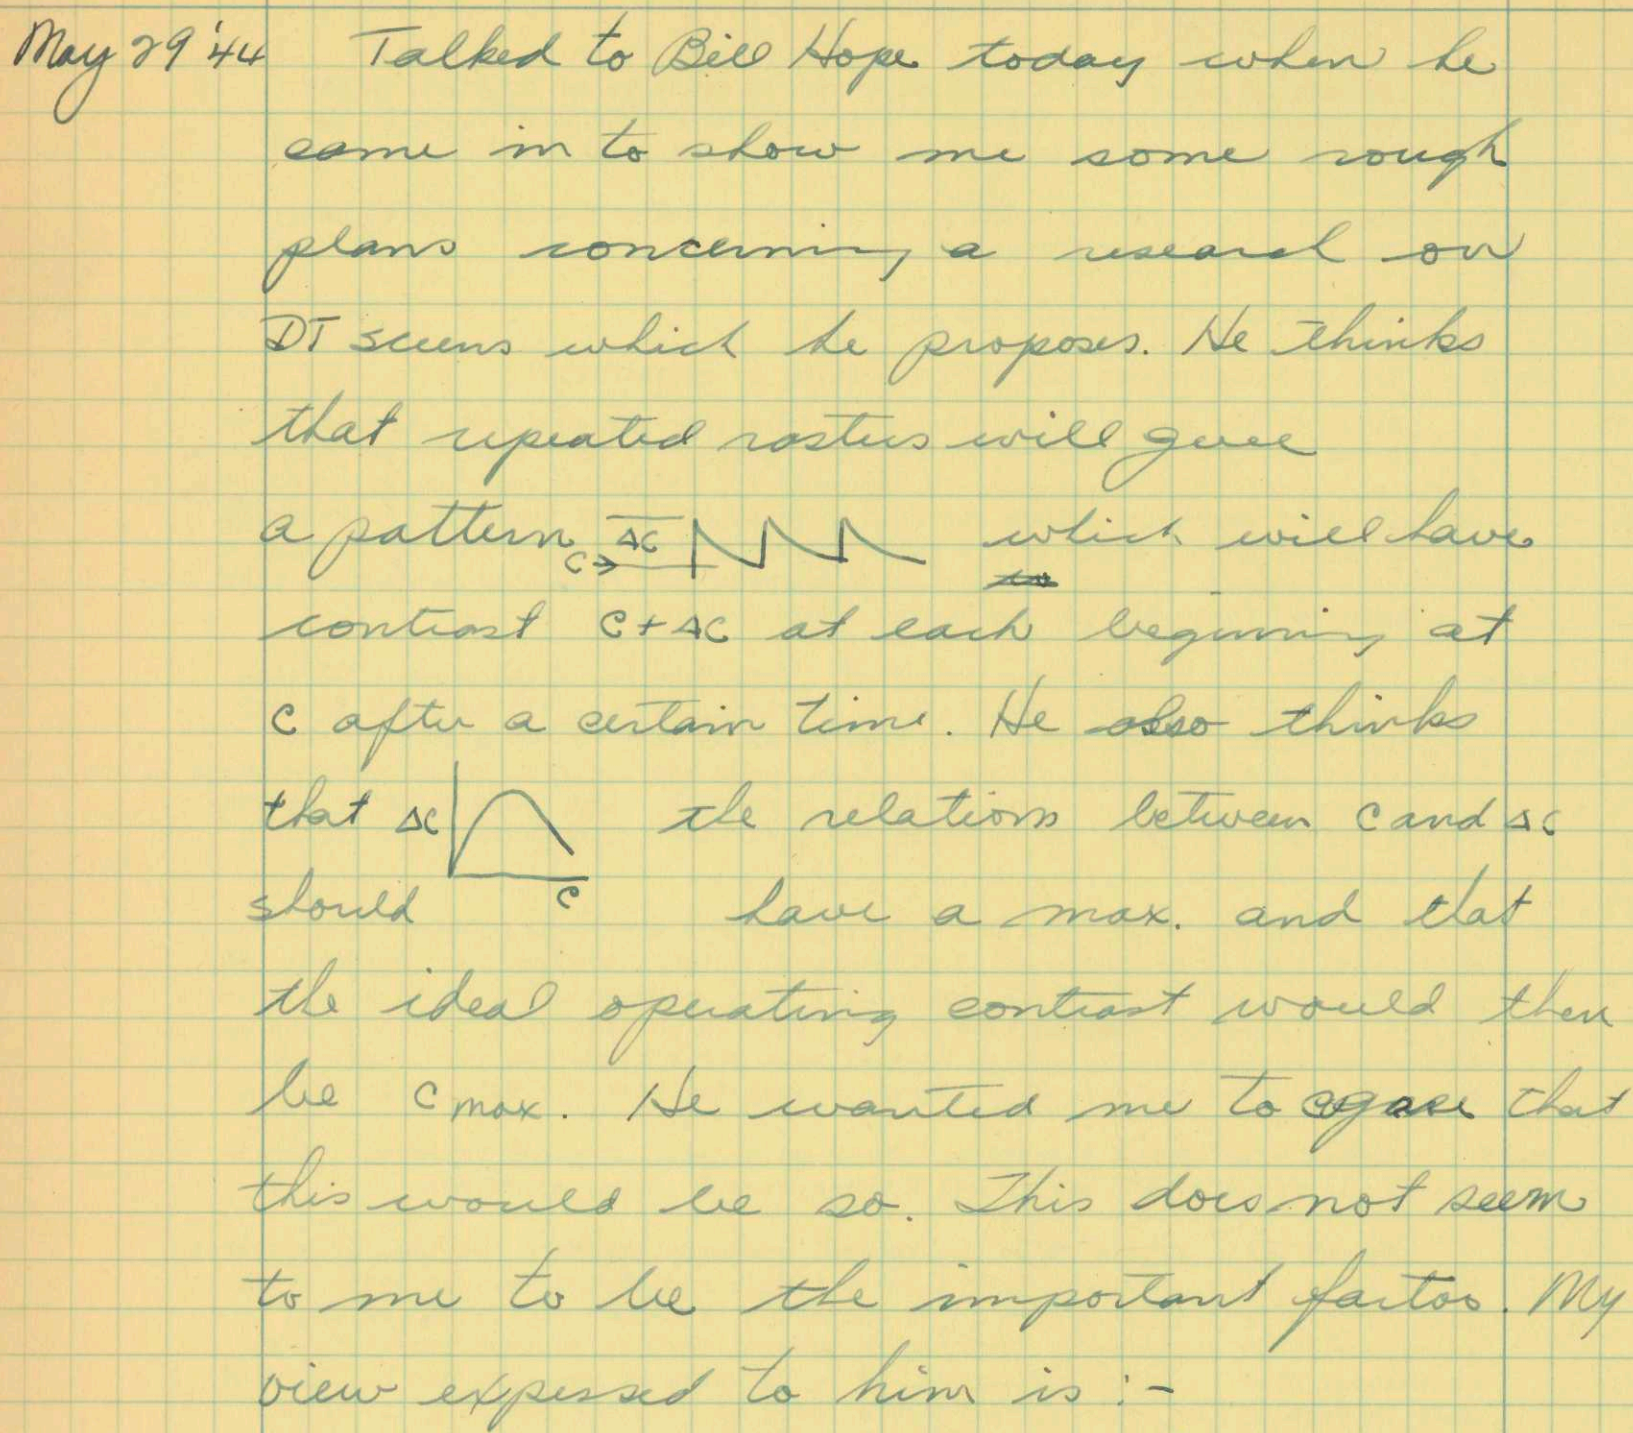 May 29 '44 Talked to Bill Hope today when he
came in to show me some rough
plans concerning a research on
DT screens which he proposes. He thinks
that repeated rasters will give
a pattern C→ ΔC which will have
contrast C+ΔC at each beginning at
C after a certain time. He also thinks
that ΔC the relations between C and ΔC
C
should have a max. and that
the ideal operating contrast would then
be C max. He wanted me to agree that
this would be so. This does not seem
to me to be the important factor. My
view expressed to him is :-